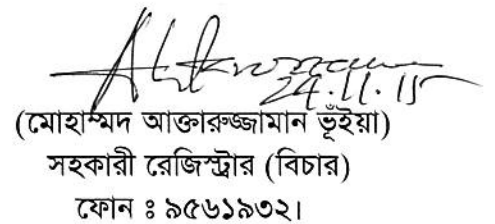 24.11.15
(মোহাম্মদ আক্তারুজ্জামান ভূঁইয়া)
সহকারী রেজিস্ট্রার (বিচার)
ফোন ঃ ৯৫৬১৯৩২।